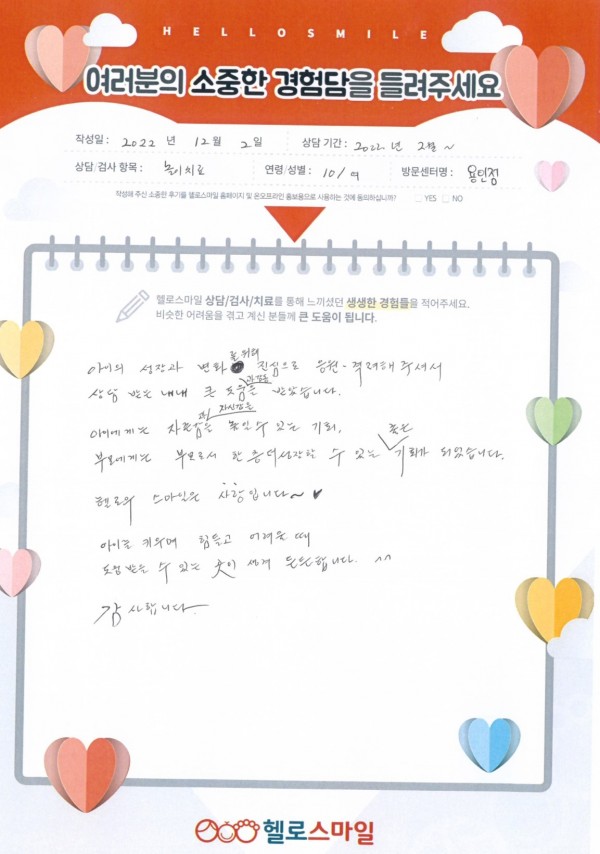 HELLOSMILE
여러분의 소중한 경험담을 들려주세요
작성일 : 2022 년 12 월 2 일 상담 기간 : 2022. 년 2월 ~
상담/검사 항목 : 놀이치료 연령/성별 : 10 / 여 방문센터명 : 용인점
작성해 주신 소중한 후기를 헬로스마일 홈페이지 및 온오프라인 홍보용으로 사용하는 것에 동의하십니까? YES NO
헬로스마일 상담/검사/치료를 통해 느끼셨던 생생한 경험들을 적어주세요.
비슷한 어려움을 겪고 계신 분들께 큰 도움이 됩니다.
아이의 성장과 변화를 위해 진심으로 응원-격려해 주셔서
상담 받는 내내 큰 도움을 받았습니다.
아이에게는 자존감과 자신감을 높일 수 있는 기회,
부모에게는 부모로서 한층 더 성장할 수 있는 좋은 기회가 되었습니다.
헬로우 스마일은 사랑입니다~ ♥
아이를 키우며 힘들고 어려울 때
도움 받을 수 있는 곳이 생겨 든든합니다. ^^
감사합니다.
헬로스마일